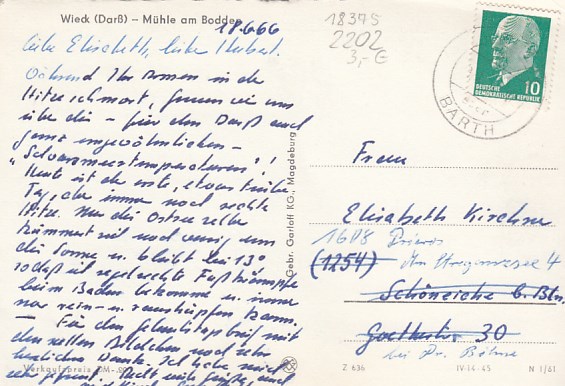 Wieck (Darß) – Mühle am Bodden
18.6.66
18375
2202
3,- €
Liebe Elisabeth, lieber Hubert.
Während Ihr Armen in der
Hitze schmort, freuen wir uns
über die – für den Darß auch
ganz ungewöhnlichen –
"Schwarzmeertemperaturen"!
Heute ist der erste, etwas trübe
Tag, aber immer noch rechte
Hitze. Nur die Ostsee selbst
kümmert sich noch wenig um
die Sonne u. bleibt bei 13°
sodaß ich regelrechte Fußkrämpfe
beim Baden bekomme u. immer
nur rein- u. raushüpfen kann.
– Für den Geburtstagsbrief mit
den netten Bildchen noch sehr
herzlichen Dank. Ich habe mich
Verkaufspreis DM -,20
Gebr. Garloff KG., Magdeburg
10
DEUTSCHE
DEMOKRATISCHE REPUBLIK
BARTH
Frau
Elisabeth Kirchner
1608 Prieros
(1254) Am Streganzsee 4
Schöneiche b. Bln.
Goethestr. 30
bei Dr. Böhme
Z 636
IV-14-45
N 1/61